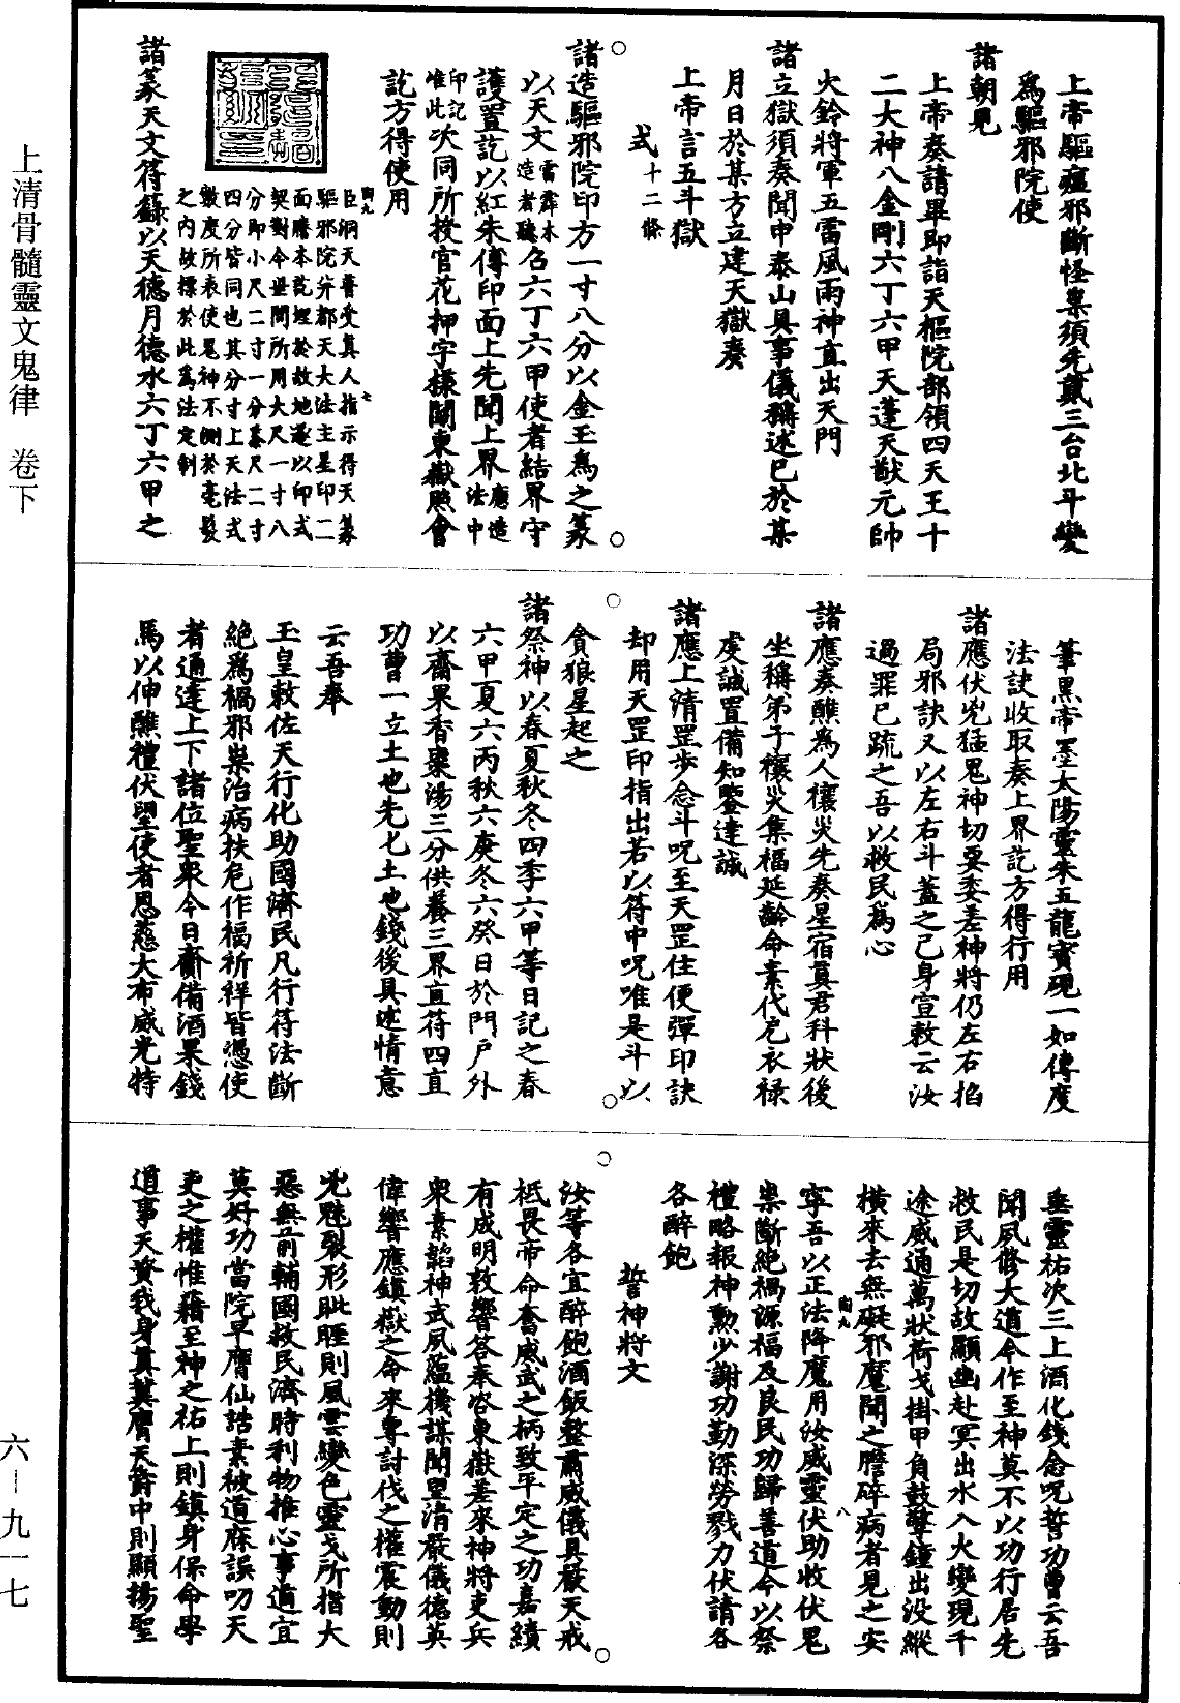 上帝驅瘟邪斷怪祟須先貳三台北斗變
為驅邪院使
諸朝見
上帝奏請畢即詣天樞院部領四天王十
二大神八金剛六丁六甲天蓬天猷元帥
火鈴將軍五雷風雨神直出天門
諸立獄須奏聞申泰山具事儀稱述已於某
月日於某方立建天獄奏
上帝言五斗獄
式十二條
諸造驅邪院印方一寸八分以金玉為之篆
以天文雷霹木造者聽召六丁六甲使者結界守
護置訖以紅朱傳印面上先聞上界應造法中
印記唯此次同所授官花押字樣關東嶽照會
訖方得使用
圖九
臣炯天普受真人指示得天篆
七
驅邪院并都天大法主星印二
面謄本訖埋於故地遂以印式
契勘今世間所用大尺一寸八
分即小尺二寸一分纂尺二寸
四分皆同也其分寸上天法式
數度所表使鬼神不測於毫髮
之內故標於此為法定制
諸篆天文符籙以天德月德水六丁六甲之
筆黑帝墨太陽靈朱五龍寶硯一如傳度
法訣收取奏上界訖方得行用
諸應伏兇猛鬼神切要委差神將仍左右掐
局邪訣又以左右斗蓋之己身宣敕云汝
過罪已疏之吾以救民為心
諸應奏醮為人禳災先奏星宿真君科狀後
坐稱弟子禳災集福延齡命素代厄衣祿
虔誠置備知鑒達誠
諸應上清罡步念斗呪至天罡住便彈印訣
却用天罡印指出若以符中呪唯是斗以
貪狼星起之
諸祭神以春夏秋冬四季六甲等日記之春
六甲夏六丙秋六庚冬六癸日於門戶外
以齋果香藥湯三分供養三界直符四直
功曹一立土也先七土地錢後具述情意
云吾奉
玉皇敕佐天行化助國濟民凡行符法斷
絕為禍邪祟治病扶危作福祈祥皆憑使
者通達上下諸位聖眾今日齋備酒果錢
馬以伸醮禮伏望使者恩慈大布威光特
垂靈祐次三上酒化錢念呪誓功曹云吾
聞夙修大道今作至神莫不以功行居先
救民是切故顯幽赴冥出水入火變現千
途威通萬狀荷戈掛甲負鼓擊鐘出沒縱
橫來去無礙邪魔聞之膽碎病者見之安
圖九
寧吾以正法降魔用汝威靈伏助收伏鬼
八
祟斷絕禍源福及良民功歸善道今以祭
禮略報神勳少謝功勤深勞戮力伏請各
各醉飽
誓神將文
汝等各宜醉飽酒飯整肅威儀具嚴天戒
祇畏帝命奮威武之柄致平定之功嘉績
有成明敕響答奉咨東嶽差來神將吏兵
眾素韜神武夙蘊機謀聞望清嚴儀德英
偉響應鎮嶽之命來專討伐之權震動則
兇魅裂形眦睚則風雲變色靈戈所措大
惡無前輔國救民濟時利物推心事道宜
莫好功當院早膺仙誥素被道庥誤叨天
吏之權惟藉至神之祐上則鎮身保命學
道事天資我身真冀膺天爵中則顯揚聖
上清骨髓靈文鬼律　卷下
六—九一七